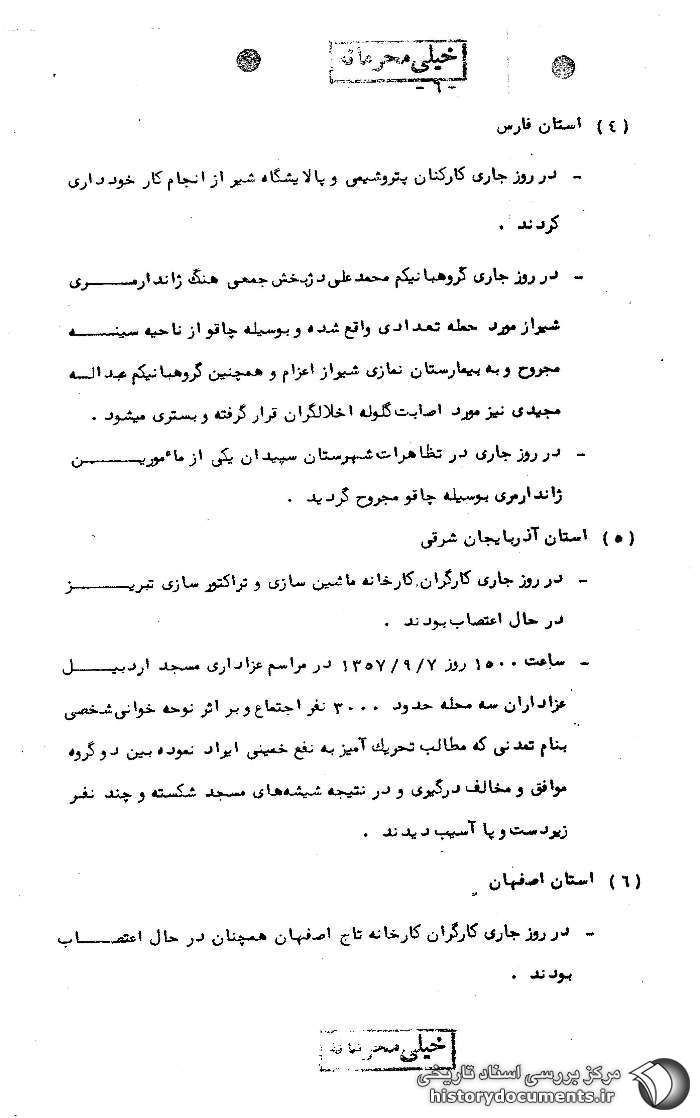 خیلی محرمانه
-٦-
(٤) استان فارس
- در روز جاری کارکنان پتروشیمی و پالایشگاه شیراز از انجام کار خودداری
کردند .
- در روز جاری گروهبانیکم محمدعلی دژبخش جمعی هنگ ژاندارمری
شیراز مورد حمله تعدادی واقع شده و بوسیله چاقو از ناحیه سینه
مجروح و به بیمارستان نمازی شیراز اعزام و همچنین گروهبانیکم عبداله
مجیدی نیز مورد اصابت گلوله اخلالگران قرار گرفته و بستری میشود .
- در روز جاری در تظاهرات شهرستان سپیدان یکی از مأمورین
ژاندارمری بوسیله چاقو مجروح گردید .
(٥) استان آذربایجان شرقی
- در روز جاری کارگران کارخانه ماشین سازی و تراکتور سازی تبریز
در حال اعتصاب بودند .
- ساعت ١٥٠٠ روز ١٣٥٧/٩/٧ در مراسم عزاداری مسجد اردبیل
عزاداران سه محله حدود ٣٠٠٠ نفر اجتماع و بر اثر نوحه خوانی شخصی
بنام تمدنی که مطالب تحریک آمیز به نفع خمینی ایراد نموده بین دو گروه
موافق و مخالف درگیری و در نتیجه شیشه‌های مسجد شکسته و چند نفر
زیردست و پا آسیب دیدند .
(٦) استان اصفهان
- در روز جاری کارگران کارخانه تاج اصفهان همچنان در حال اعتصاب
بودند .
خیلی محرمانه
مرکز بررسی اسناد تاریخی
historydocuments.ir